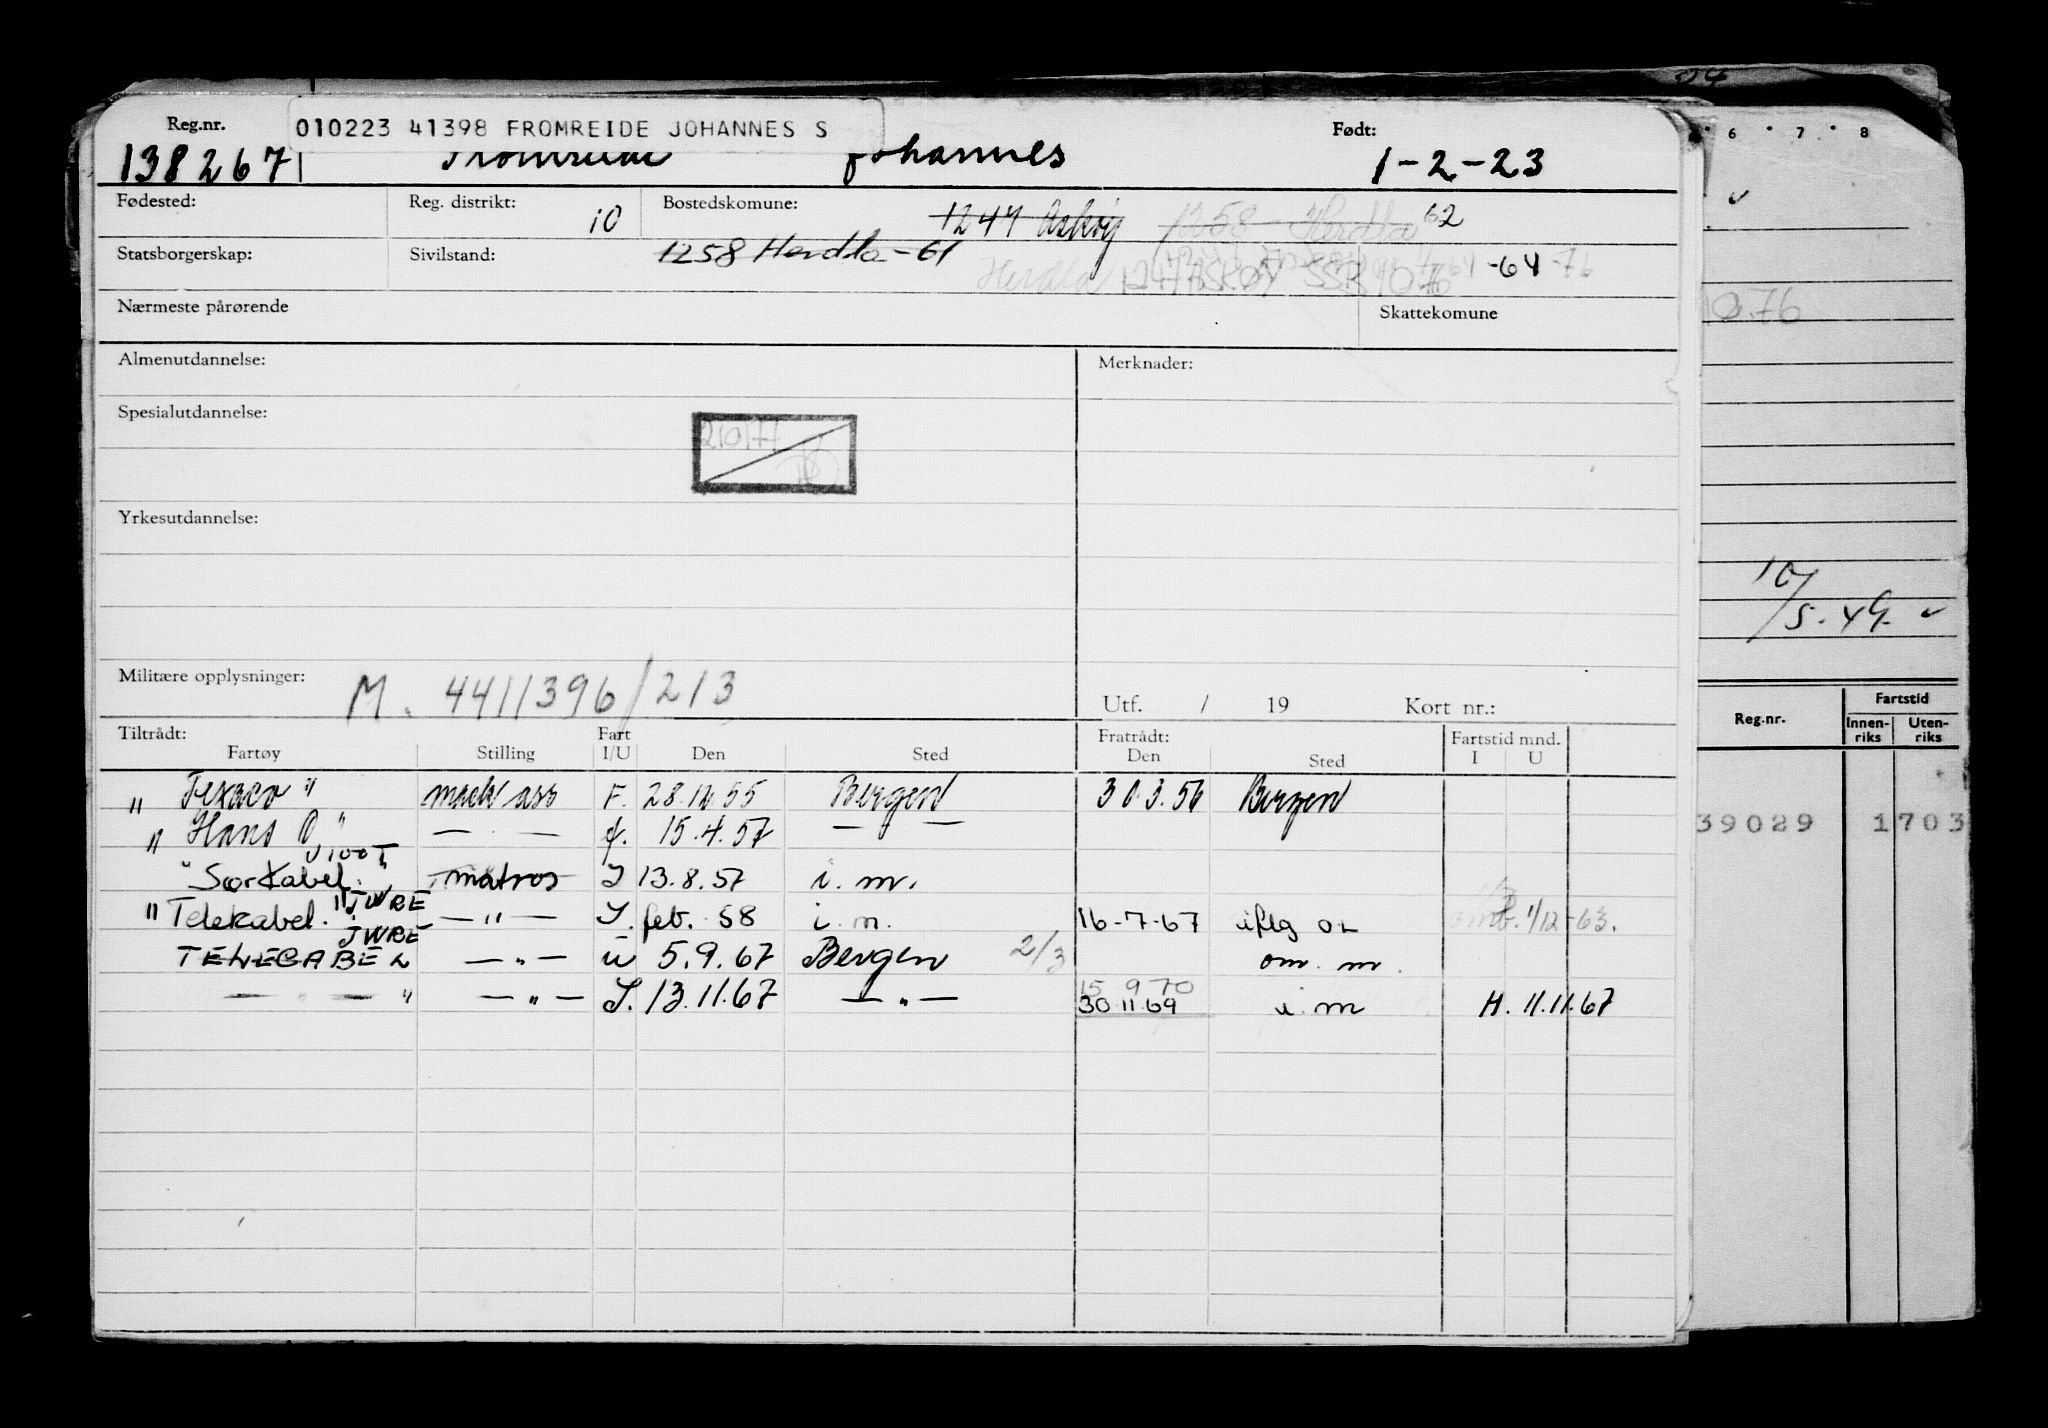 Reg.nr. 010223 41398 FROMREIDE JOHANNES S Født:
138267 Fromreide Johannes 1-2-23
Fødested: Reg. distrikt: 10 Bostedskomune: 1247 Askøy 1258 Herdla 62
Statsborgerskap: Sivilstand: 1258 Herdla-61
Herdla 1247 ASKØY -64 -76
Nærmeste pårørende Skattekomune
Almenutdannelse: Merknader:
Spesialutdannelse:
Yrkesutdannelse:
Militære opplysninger: M. 4411396/213
Utf. / 19 Kort nr.:
Tiltrådt: Fart Fratrådt: Fartstid mnd.
Fartøy Stilling I/U Den Sted Den Sted I U
" Texaco " F. 28.12 55 Bergen 30 3. 56 Bergen
" Hans " — . — f. 15.4.57 — " —
"Sørkabel." matros I 13.8.57 i. m.
JWBE
"Telekabel." — " — I. feb. 58 i. m. 16-7-67 iflg 1/12-63.
JWBE
TELEGABEL — " — u 5.9.67 Bergen 2/3 om. m.
— " — " — " — I. 13.11.67 — " — 15 9 70
30.11.69 i. m H. 11.11.67
6 7 8
10/5-49
Reg.nr. Fartstid
Innenriks Utenriks
39029 1703